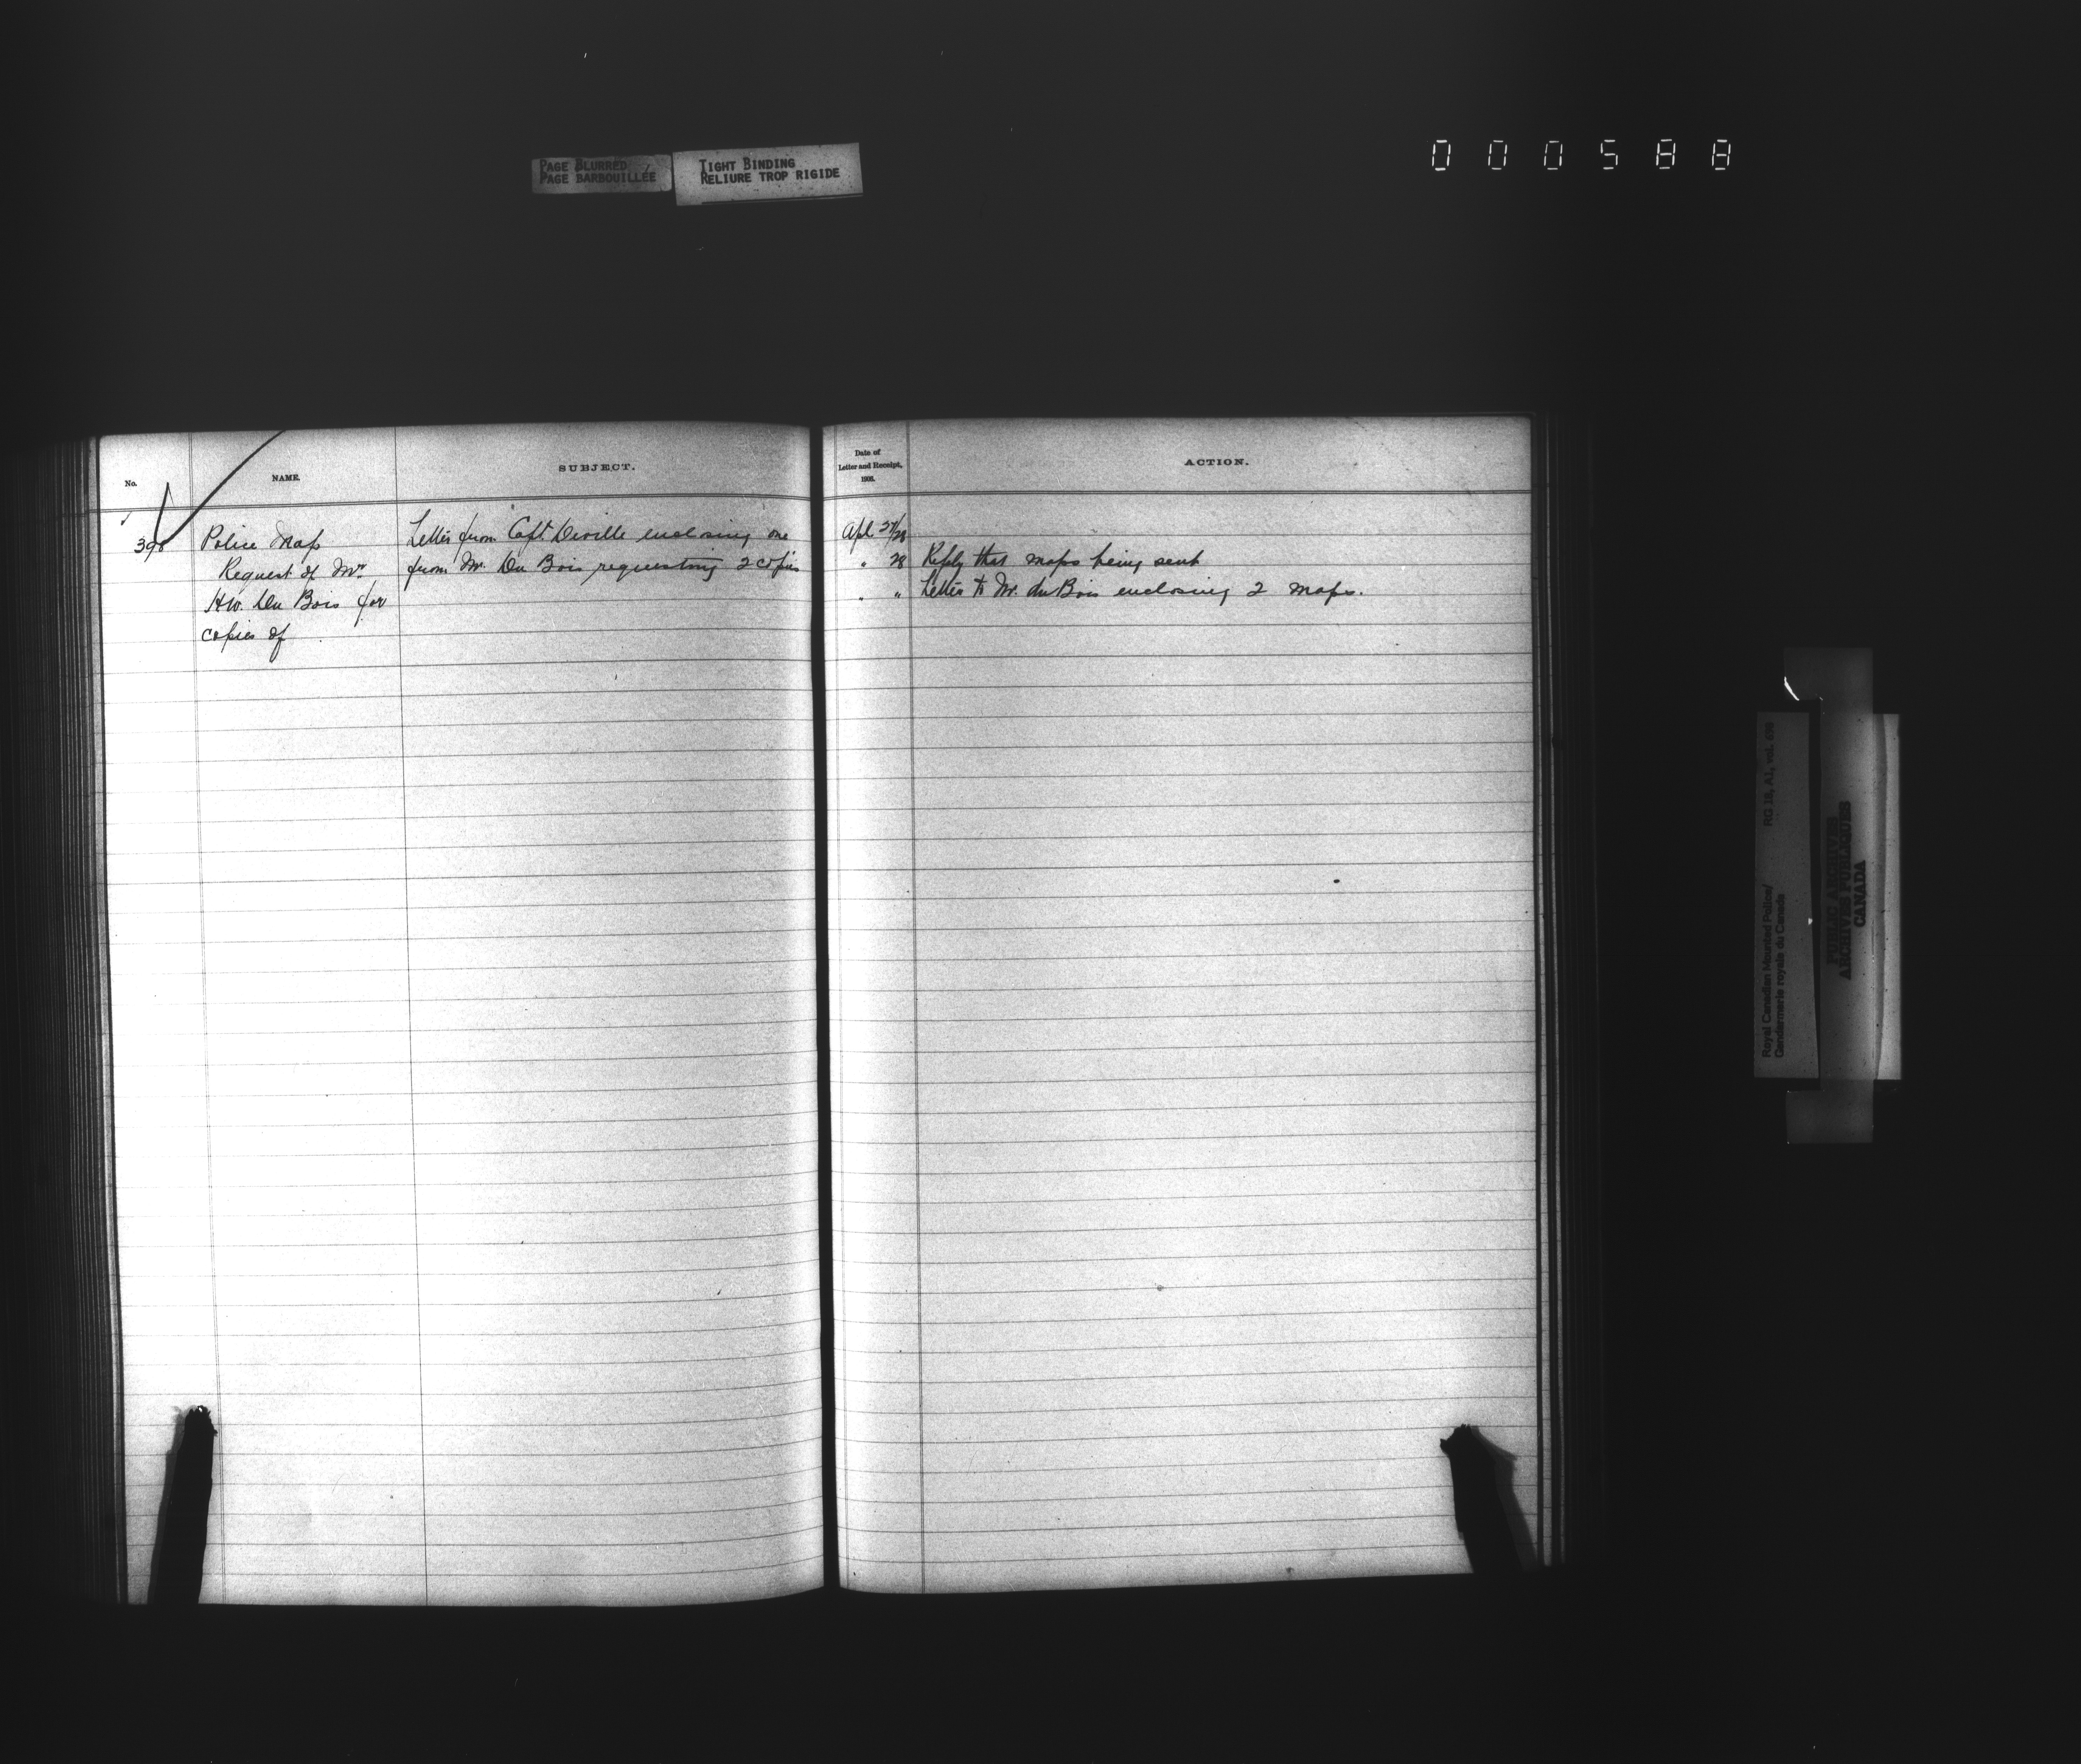 PAGE BLURRED
PAGE BARBOUILLÉE
TIGHT BINDING
RELIURE TROP RIGIDE
000588
No.
NAME.
SUBJECT.
398
Police Map
Request of Mr
H.W. Du Bois for
copies of
Letter from Capt. Deville enclosing one
from Mr. Du Bois requesting 2 copies
Date of
Letter and Receipt,
190
ACTION.
Apl 27/28
" 28 Reply that maps being sent
" " Letter to Mr. du Bois enclosing 2 maps.
Royal Canadian Mounted Police/
Gendarmerie royale du Canada
RG 18, A1, vol.
PUBLIC ARCHIVES
ARCHIVES PUBLIQUES
CANADA